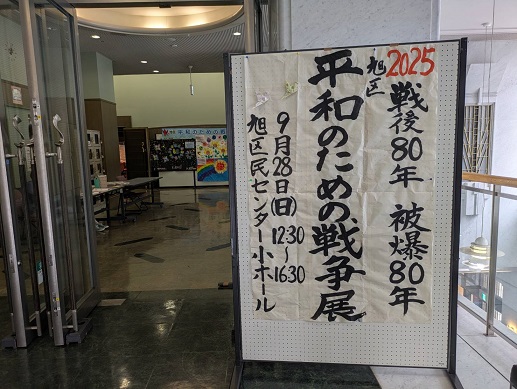 2025 戦後80年 被爆80年
旭区
平和のための、戦争展
9月28日(日)12:30～16:30
旭区民センター小ホール